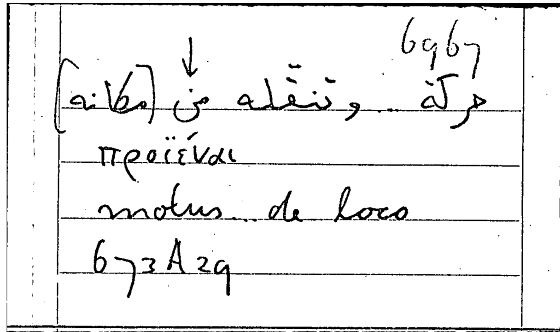 6967
حركة ... وتنقله من [مكانه]
προϊέναι
motus... de loco
673A29